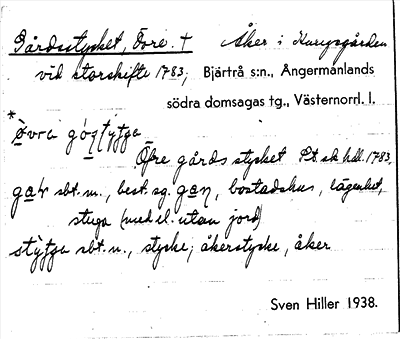 Gårdsstycket, Övre. † Åker i Kungsgården
vid storskifte 1783, Bjärtrå s:n., Ångermanlands
södra domsagas tg., Västernorrl. l.
Övre gårdsstycket St. sk. hdl. 1783.
sbt. m., best. sg. bostadshus, lägenhet,
stuga (med el. utan jord)
sbt. n., stycke; åkerstycke, åker
Sven Hiller 1938.